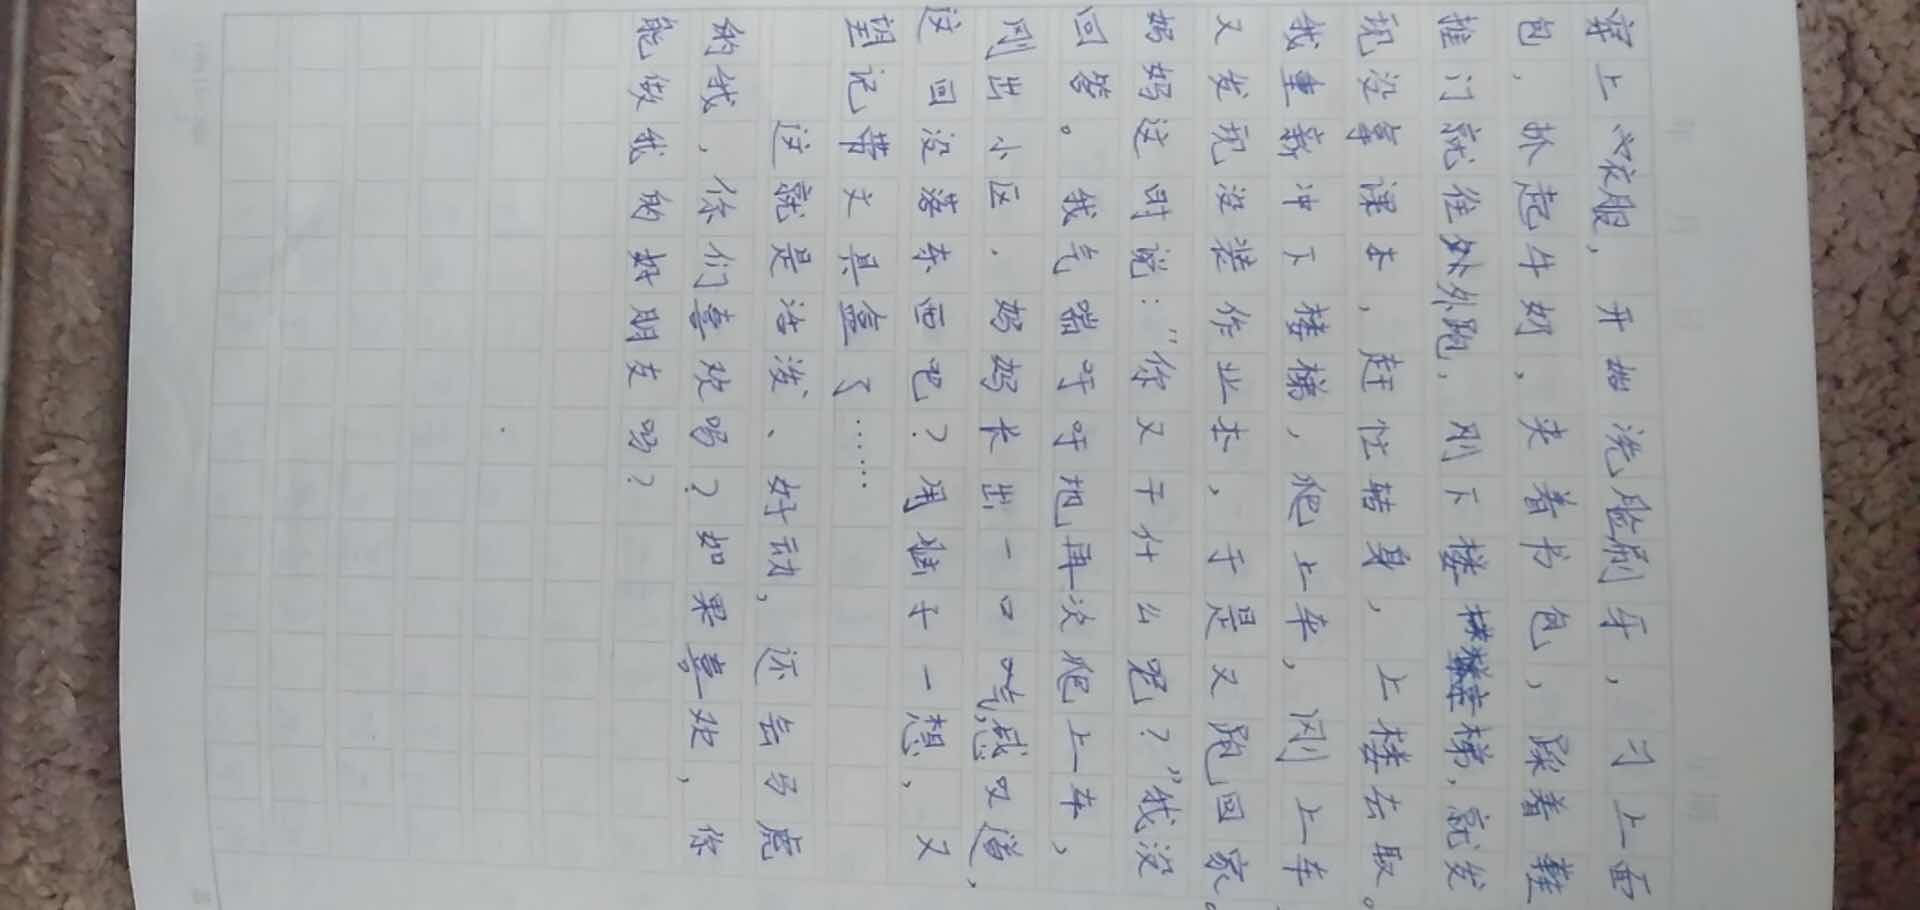 穿上衣服，开始洗脸刷牙，刁上面
包，抓起牛奶，夹着书包，踩着鞋
推门就往外外跑，刚下楼梯，就发
现没拿课本，赶忙转身，上楼去取。
我重新冲下楼梯，爬上车，刚上车
又发现没装作业本，于是又跑回家。
妈妈这时说：“你又干什么呢？”我没
回答。我气喘吁吁地再次爬上车，
刚出小区，妈妈长出一口气，感叹道，
这回没落东西吧？用脑子一想，又
望记带文具盒了……
这就是活泼、好动，还去马虎
的我，你们喜欢吗？如果喜欢，你
能做我的好朋友吗？